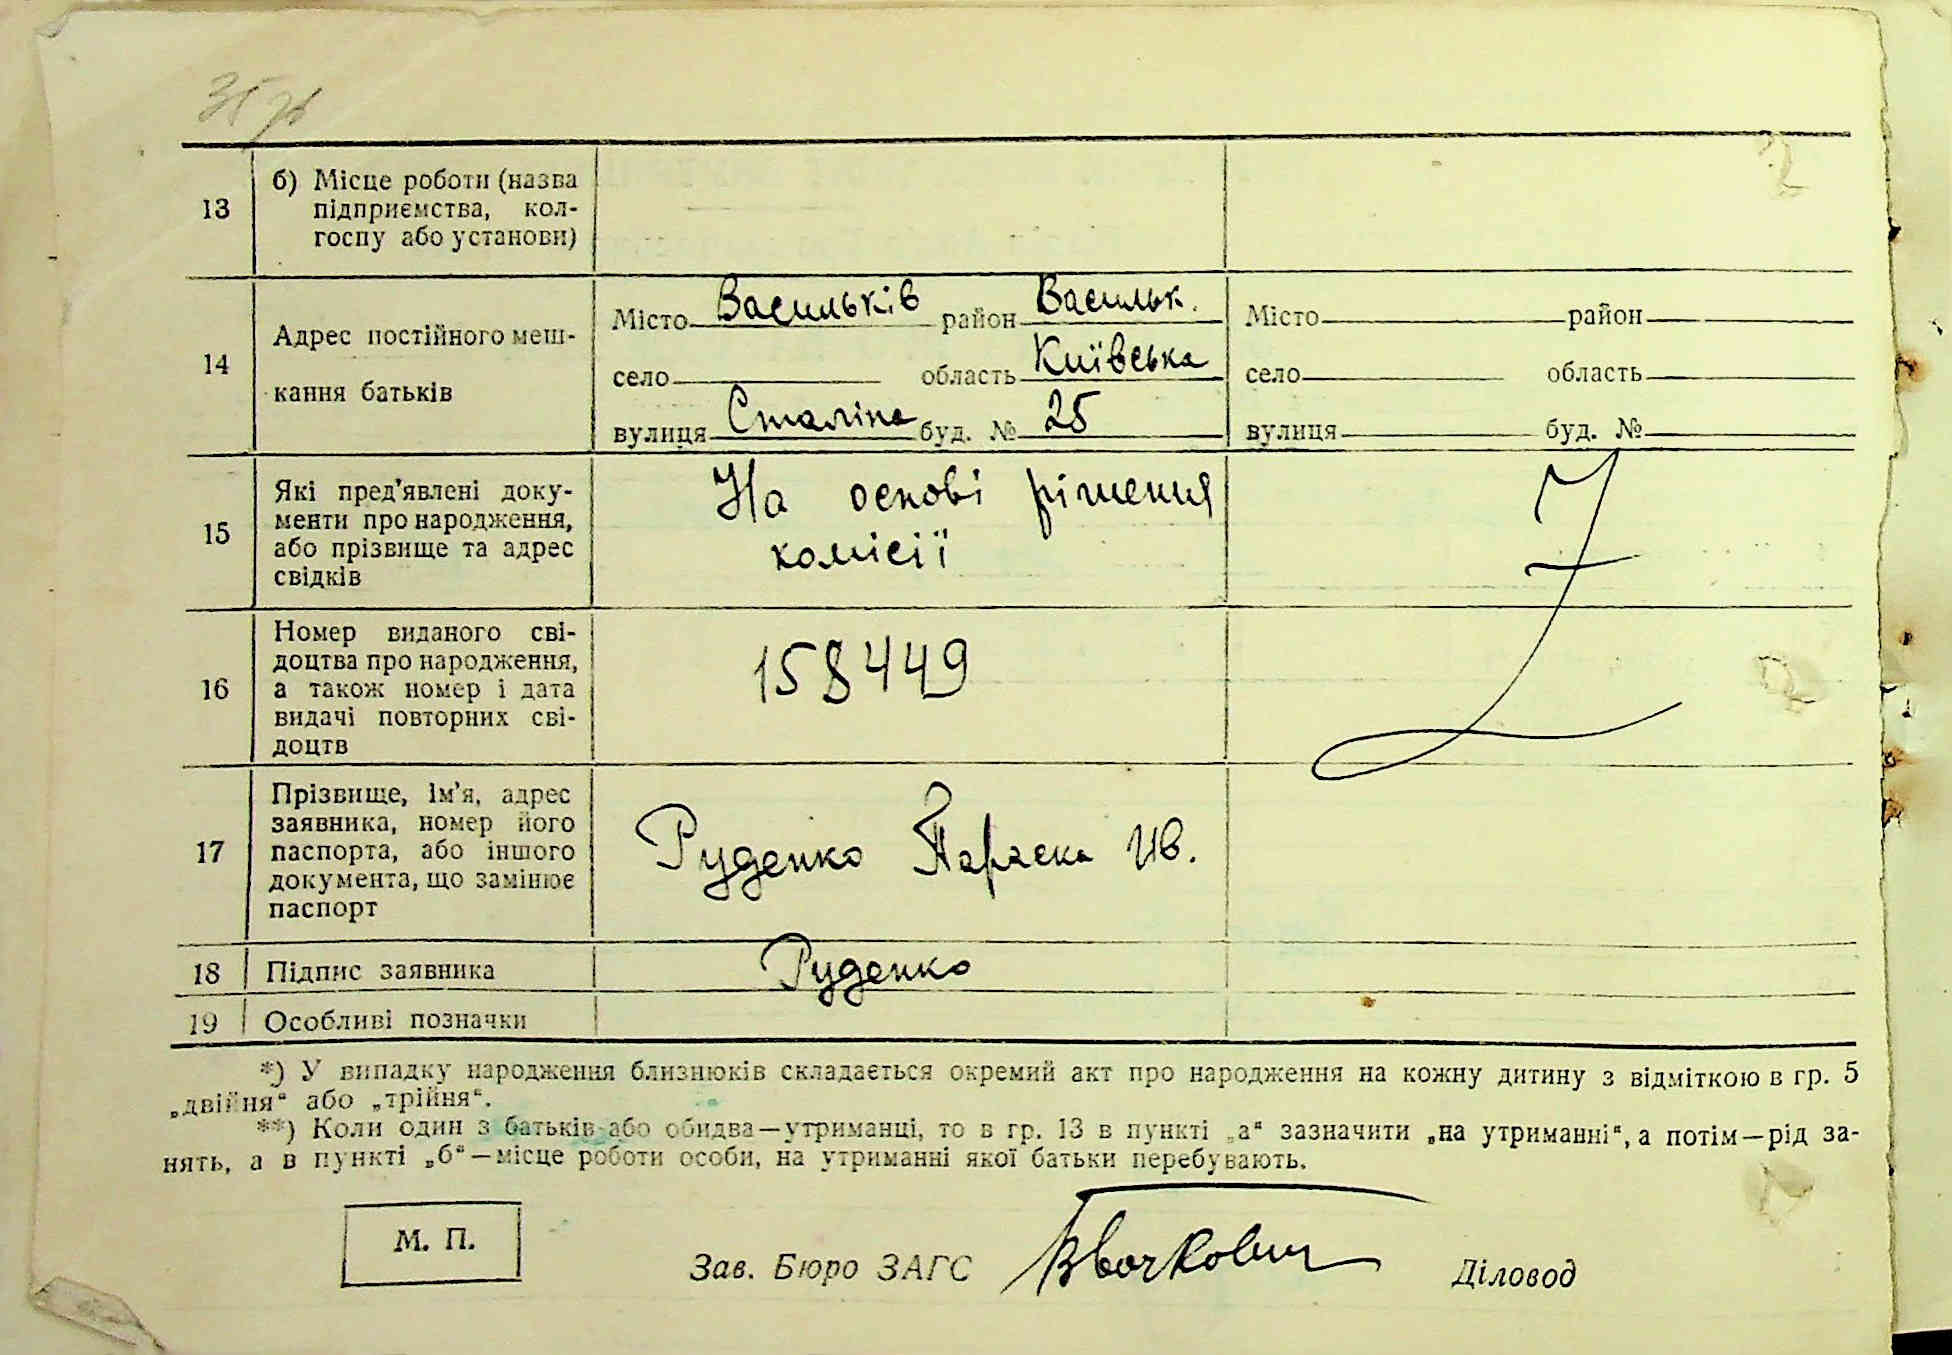 13
б) Місце роботи (назва
підприємства, кол-
госпу або установи)
14
Адрес постійного меш-
кання батьків
Місто Васильків район Васильк.
село область Київська
вулиця Сталіна буд. № 25
Місто район
село область
вулиця буд. №
15
Які пред'явлені доку-
менти про народження,
або прізвище та адрес
свідків
На основі рішення
комісії
16
Номер виданого сві-
доцтва про народження,
а також номер і дата
видачі повторних сві-
доцтв
158449
17
Прізвище, ім'я, адрес
заявника, номер його
паспорта, або іншого
документа, що замінює
паспорт
Руденко Параска Ив.
18 Підпис заявника Руденко
19 Особливі позначки
*) У випадку народження близнюків складається окремий акт про народження на кожну дитину з відміткою в гр. 5
„двійня“ або „трійня“.
**) Коли один з батьків або обидва—утриманці, то в гр. 13 в пункті „а“ зазначити „на утриманні“, а потім—рід за-
нять, а в пункті „б“—місце роботи особи, на утриманні якої батьки перебувають.
М. П.
Зав. Бюро ЗАГС Діловод